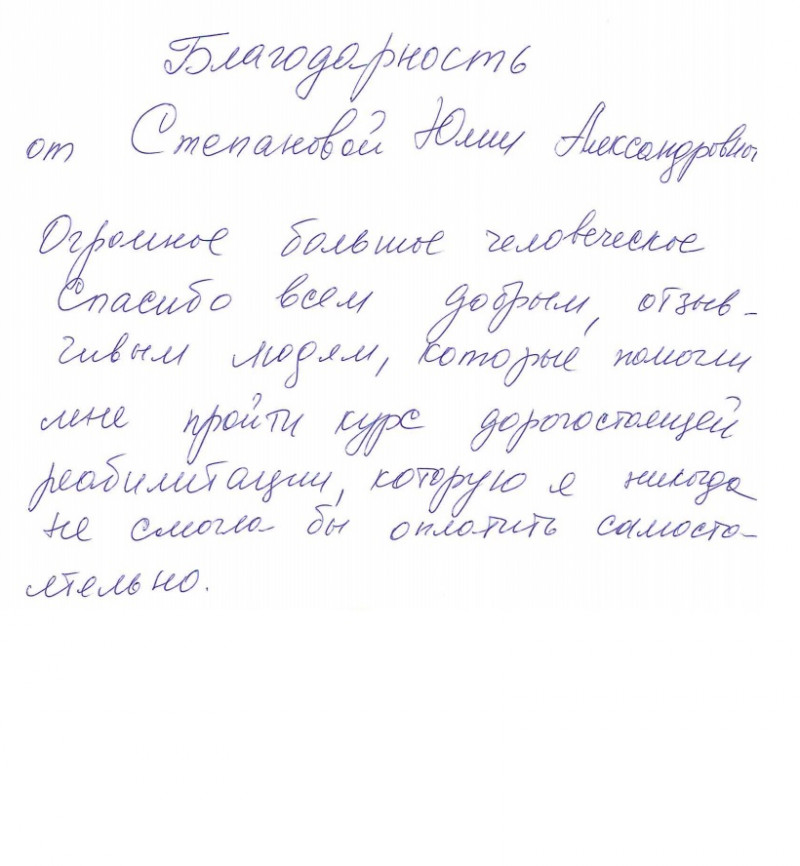 Благодарность
от Степановой Юлии Александровны
Огромное большое человеческое
Спасибо всем добрым, отзыв-
чивым людям, которые помогли
мне пройти курс дорогостоящей
реабилитации, которую я никогда
не смогла бы оплатить самосто-
ятельно.